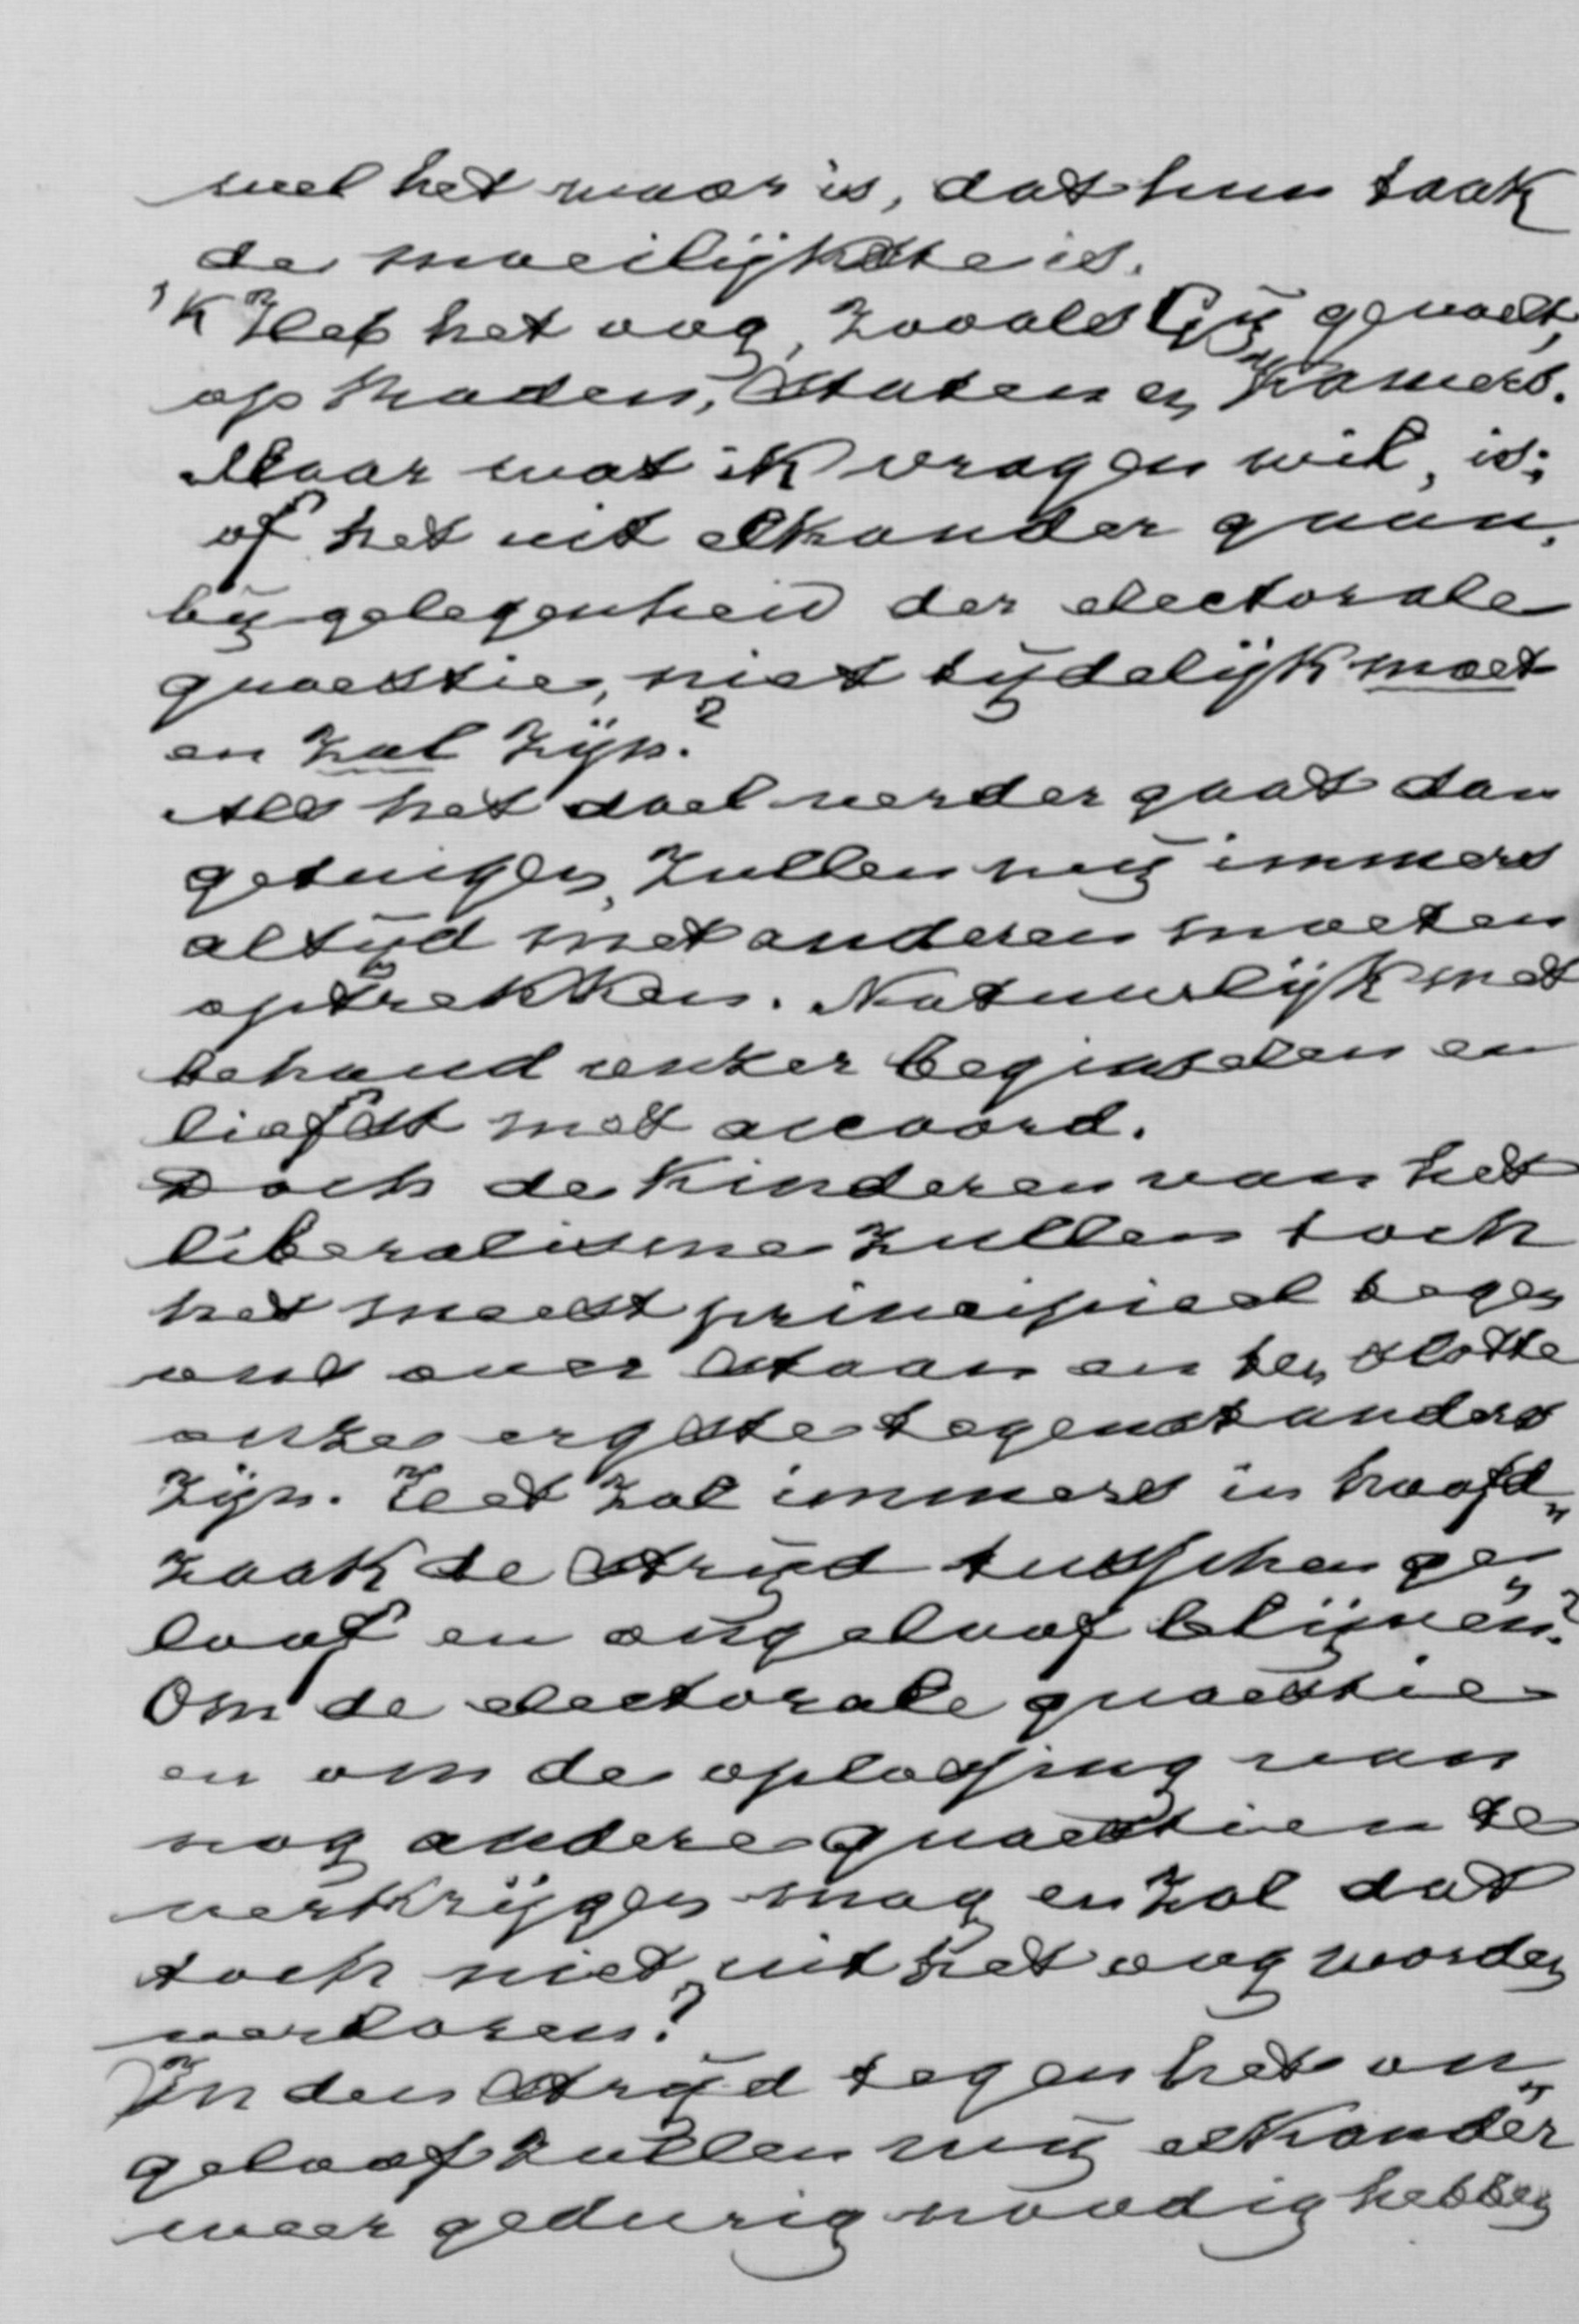 wel het waar is, dat hun taak
de moeilijkste is.
'k Heb het oog, zooals Gij gevoelt,
op Raden, Staten en Kamers.
Maar wat ik vragen wil, is:
of het uit elkander gaan,
bij gelegenheid der electorale
quaestie, niet tijdelijk moet
en zal zijn?
Als het doel verder gaat dan
getuigen, zullen wij immers
altijd met anderen moeten
optrekken. Natuurlijk met
behoud onzer beginselen en
liefst met accoord.
Doch de kinderen van het
liberalisme zullen toch
het meest principieel tegen
ons over staan en ten slotte
onze ergste tegenstanders
zijn. Het zal immers in hoofd„
zaak de strijd tusschen ge„
loof en ongeloof blijven?
Om de electorale quaestie
en om de oplossing van
nog andere quaestien te
verkrijgen mag en zal dat
toch niet uit het oog worden
verloren?
In den strijd tegen het on„
geloof zullen wij elkander
weer gedurig noodig hebben